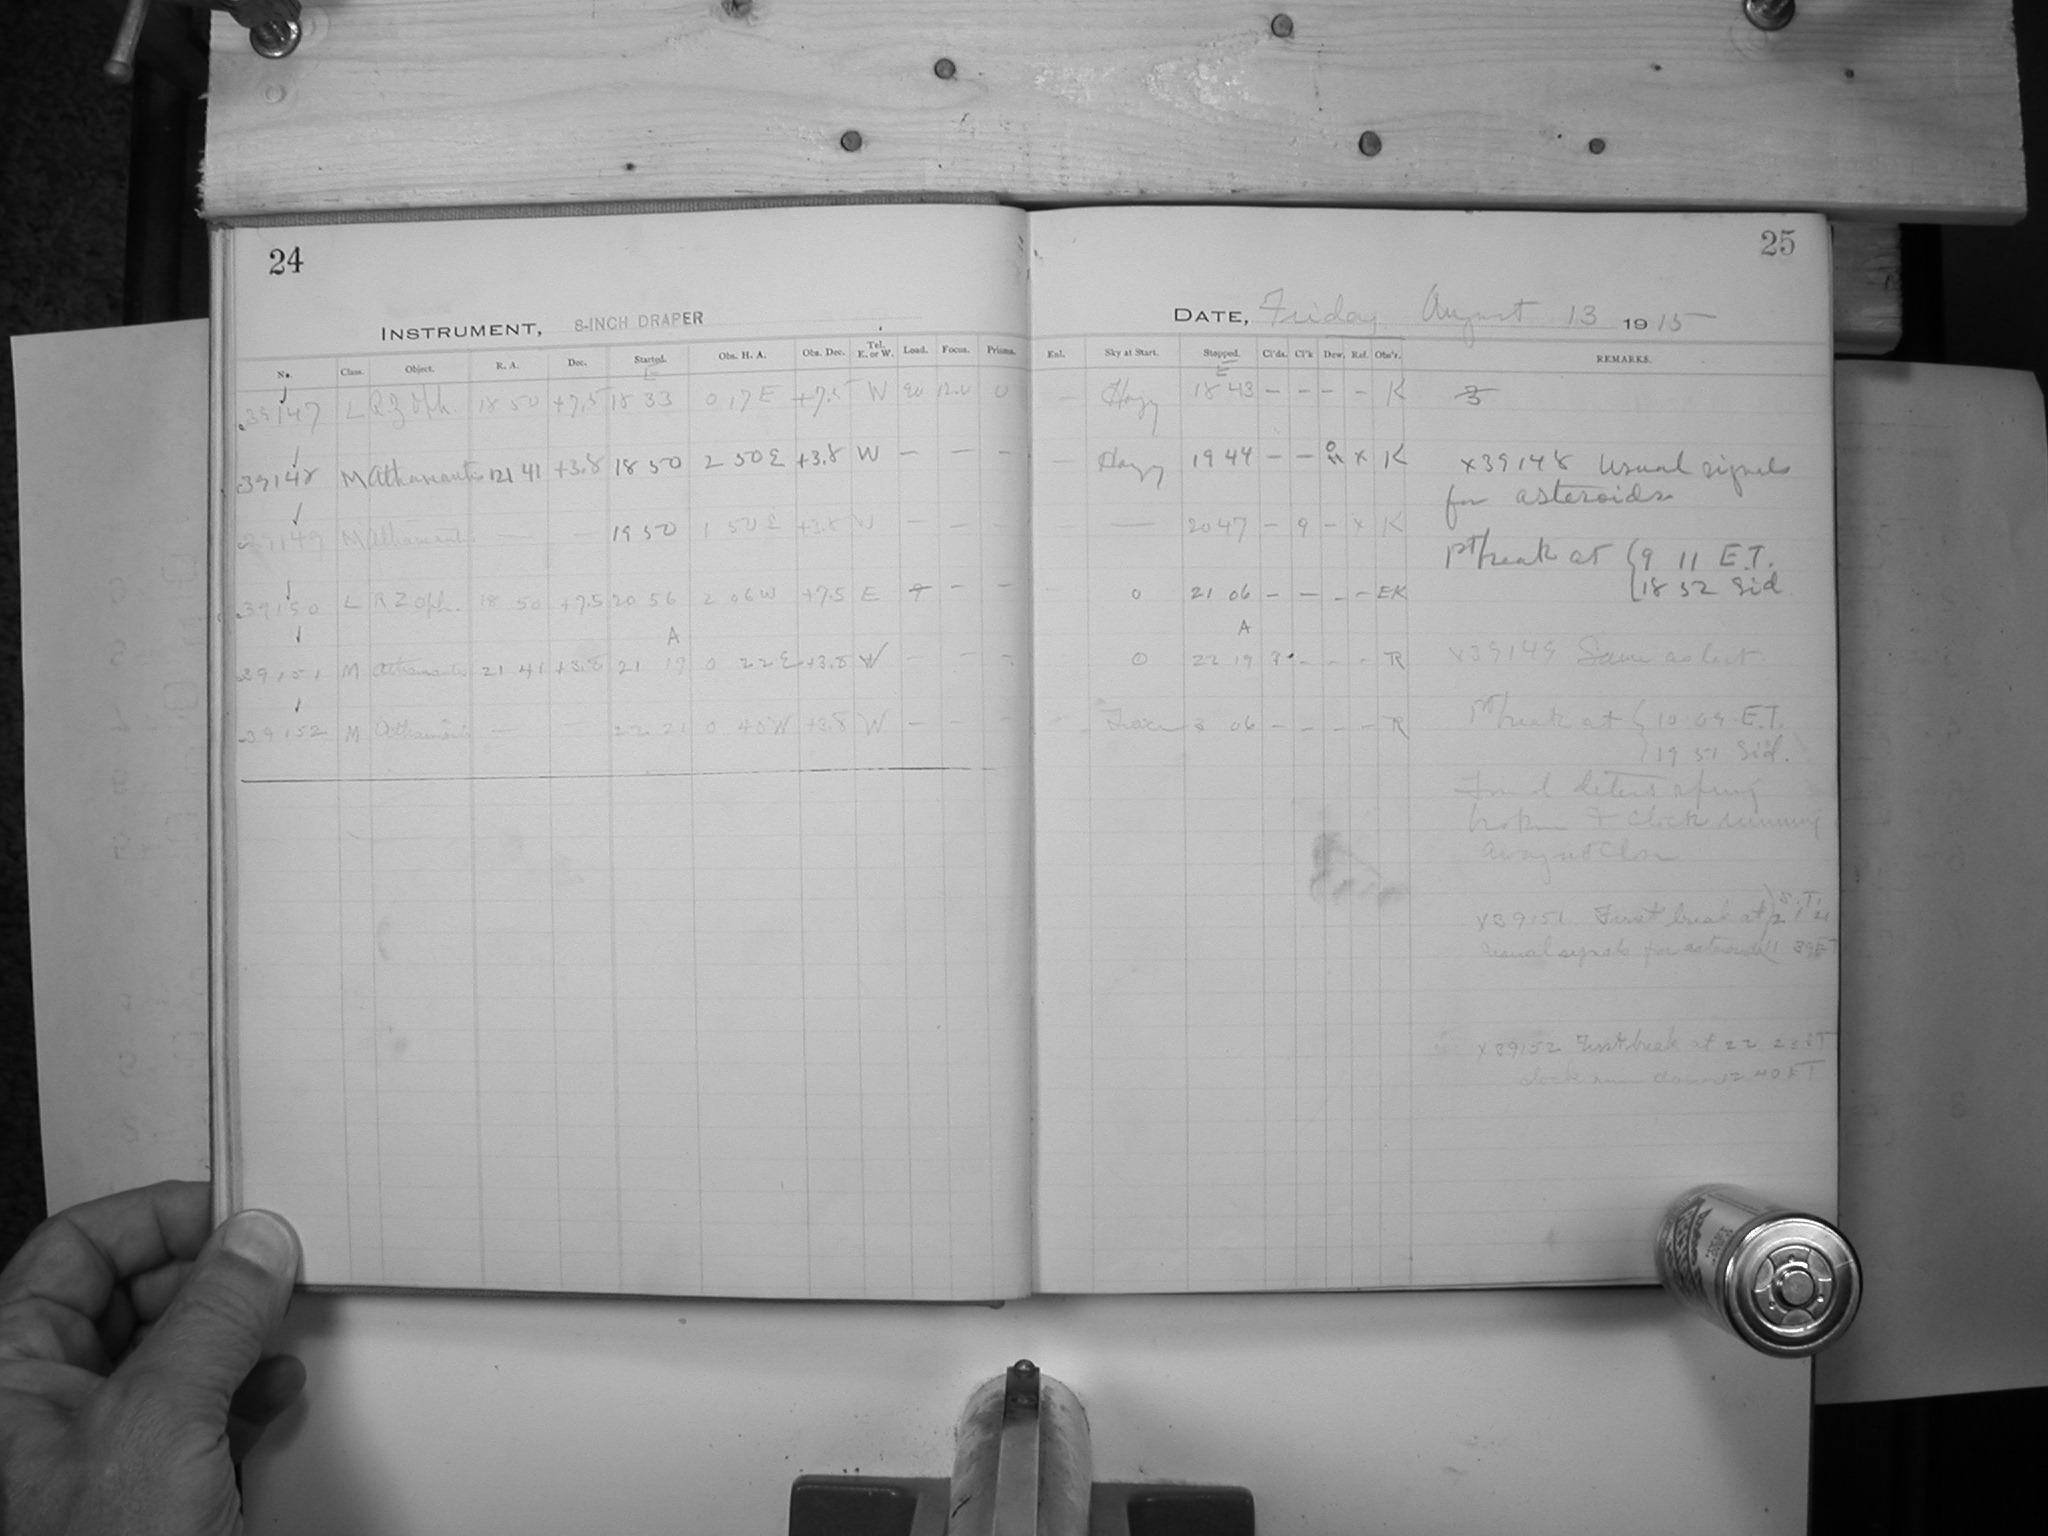 24
INSTRUMENT, 8-INCH DRAPER
No. Class. Object. R. A. Dec. Started. Obs. H. A. Obs. Dec. Tel. E. or W. Load. Focus. Prisms.
39147 L RZ Oph. 18 50 +7.5 18 33 0 17 E +7.5 W 12.0 0
39148 M Athamantis 21 41 +3.8 18 50 2 50 E +3.8 W — — —
39149 M Athamantis — — 19 50 1 50 E +3.8 W — — —
39150 L RZ Oph. 18 50 +7.5 20 56 2 06 W +7.5 E — —
A
39151 M Athamantis 21 41 +3.8 21 19 0 22 E +3.8 W — — —
39152 M Athamantis — — 22 21 0 40 W +3.8 W — — —
25
DATE, Friday August 13 1915
Enl. Sky at Start. Stopped. Cl'ds. Cl'k Dew, Ref. Obs'r. REMARKS.
— Hazy 18 43 — — — — K 3
— Hazy 19 44 — — x K x39148 Usual signals
for asteroids
— 20 47 — 9 — x K
1st break at { 9 11 E.T.
18 52 Sid.
0 21 06 — — — — EK
A
0 22 19 — — — R x39149 Same as last
06 — — — — R
1st break at { 10 09 E.T.
19 51 Sid.
Found detent spring
broken & clock running
away at close
x39151 First break at } S.T. 21 21
usual signals for asteroid 11 39 ET
x39152 First break at 22 23 ST
clock run down 12 40 ET